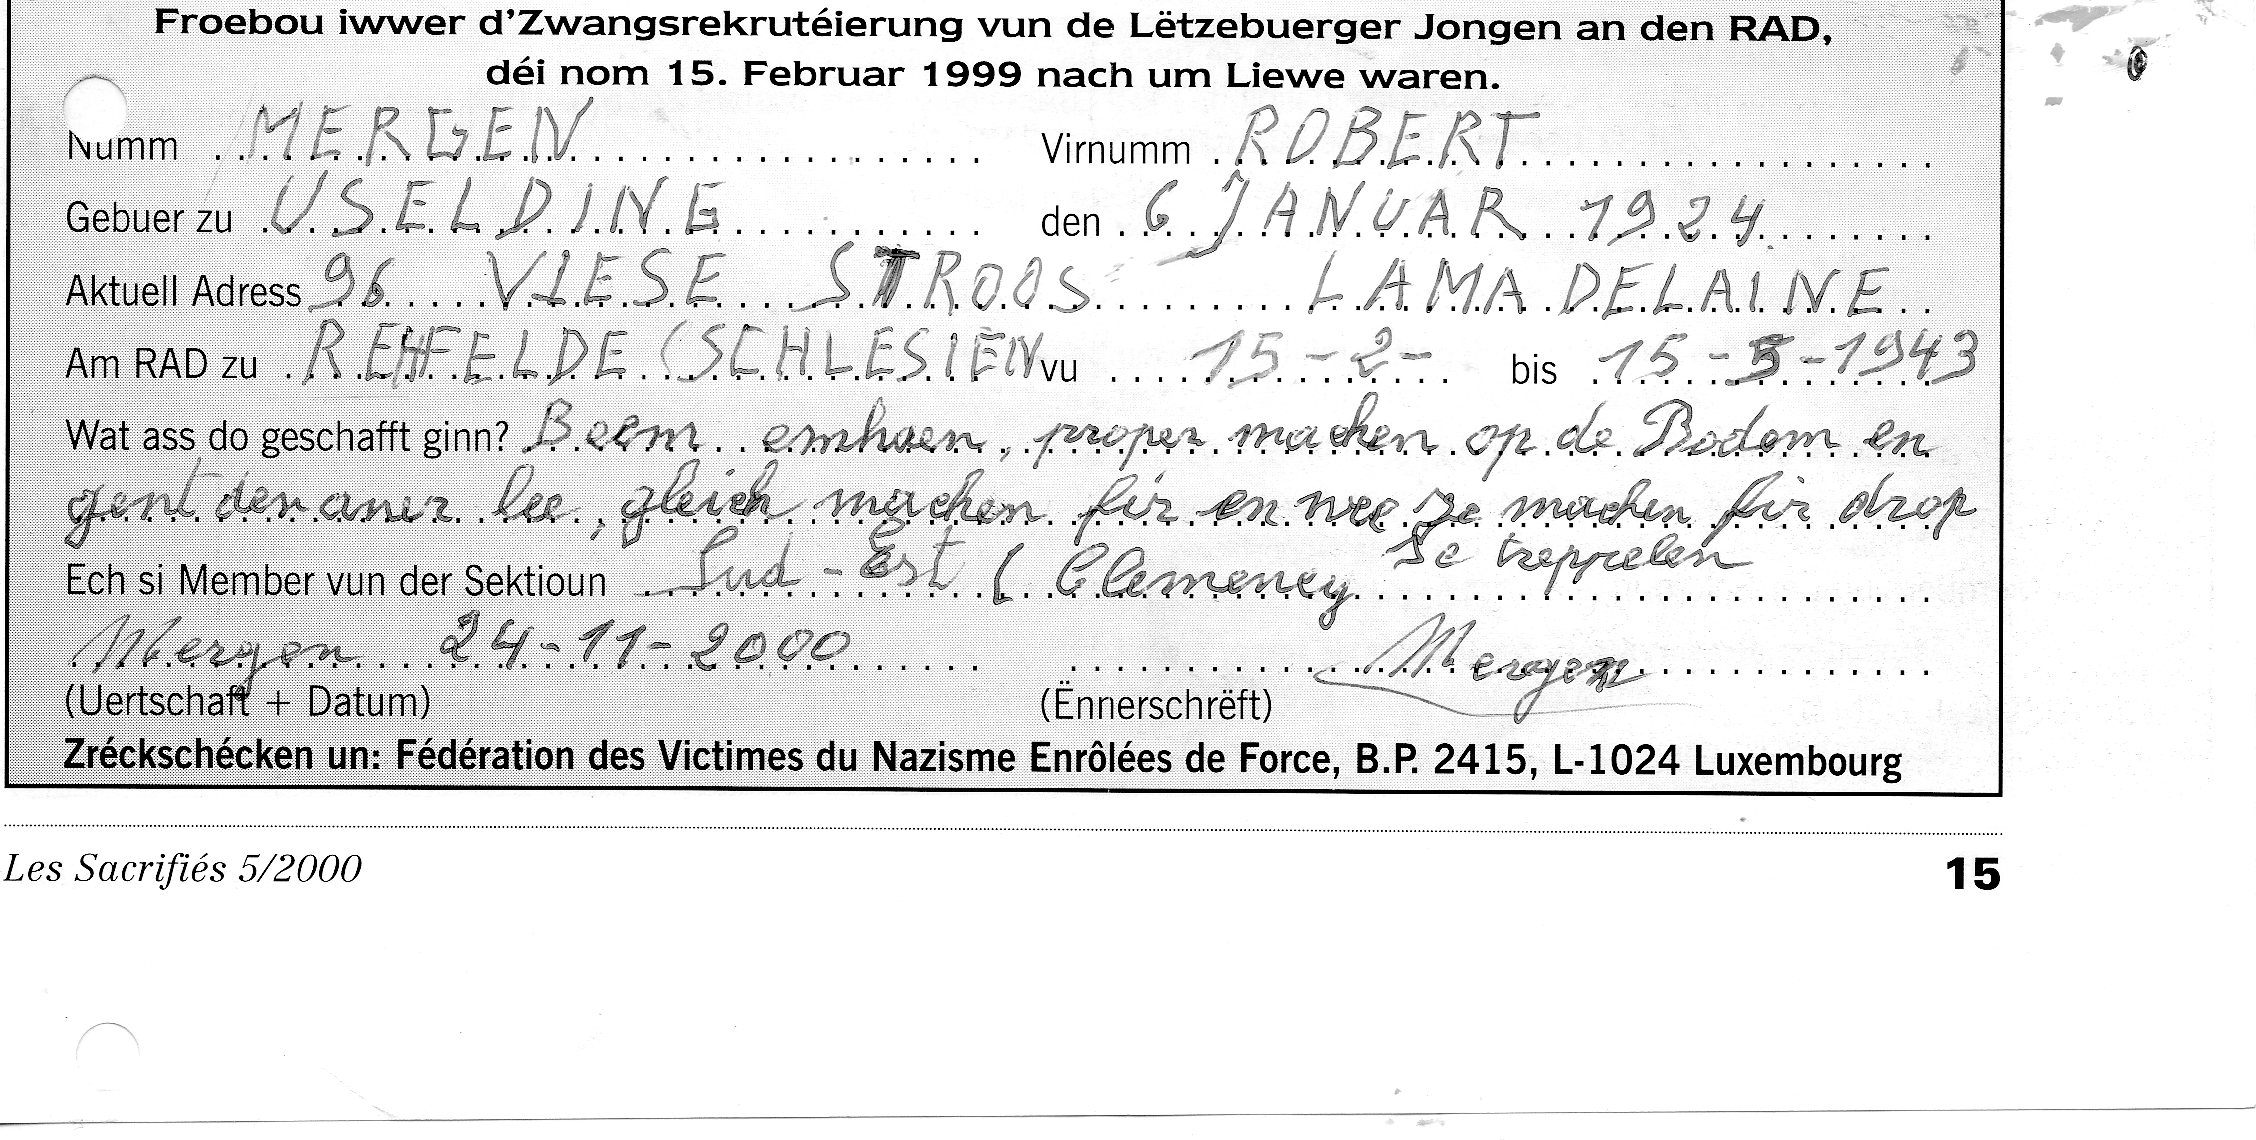 Froebou iwwer d'Zwangsrekrutéierung vun de Lëtzebuerger Jongen an den RAD,
déi nom 15. Februar 1999 nach um Liewe waren.
Numm MERGEN Virnumm ROBERT
Gebuer zu USELDING den 6 JANUAR 1924
Aktuell Adress 96 VIESE STROOS LAMADELAINE
Am RAD zu REHFELDE (SCHLESIEN vu 15-2- bis 15-5-1943
Wat ass do geschafft ginn? Beem emhaen, proper machen op de Bodem en
gent den aner lee, gleich machen fir en wee ze machen fir drop
ze treppelen
Ech si Member vun der Sektioun Sud-Est ( Clemency
Mergen 24-11-2000 Mergen
(Uertschaft + Datum) (Ënnerschrëft)
Zréckschécken un: Fédération des Victimes du Nazisme Enrôlées de Force, B.P. 2415, L-1024 Luxembourg
Les Sacrifiés 5/2000 15